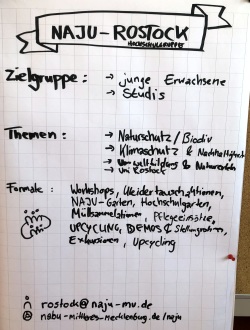 NAJU-ROSTOCK
HOCHSCHULGRUPPE
Zielgruppe: → junge Erwachsene
→ Studis
Themen: → Naturschutz/Biodiv
→ Klimaschutz & Nachhaltigkeit
→ Umweltbildung & Naturerleben
→ Uni Rostock
Formate: Workshops, Kleidertauschaktionen,
NAJU-Garten, Hochschulgarten,
Müllsammelaktionen, Pflegeeinsätze,
UPCYCLING, DEMOS &
Exkursionen, Upcycling
rostock@naju-mv.de
nabu-mittleres-mecklenburg.de/naju